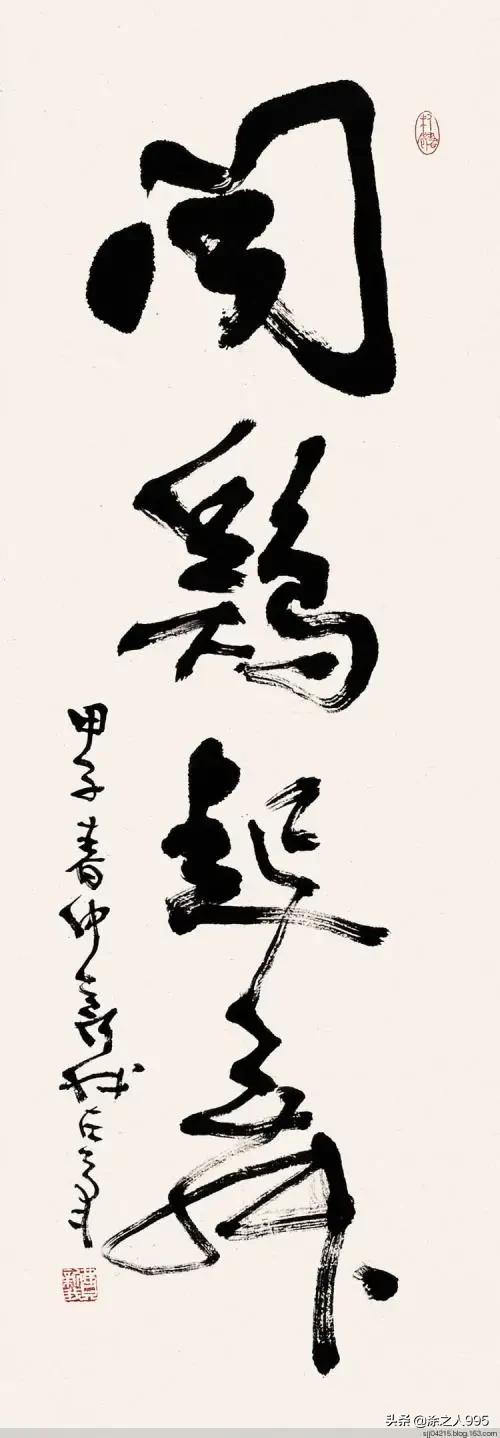 聞鷄起舞
甲子春仲
头条 @涂之人995
sjj04215.blog.163.com